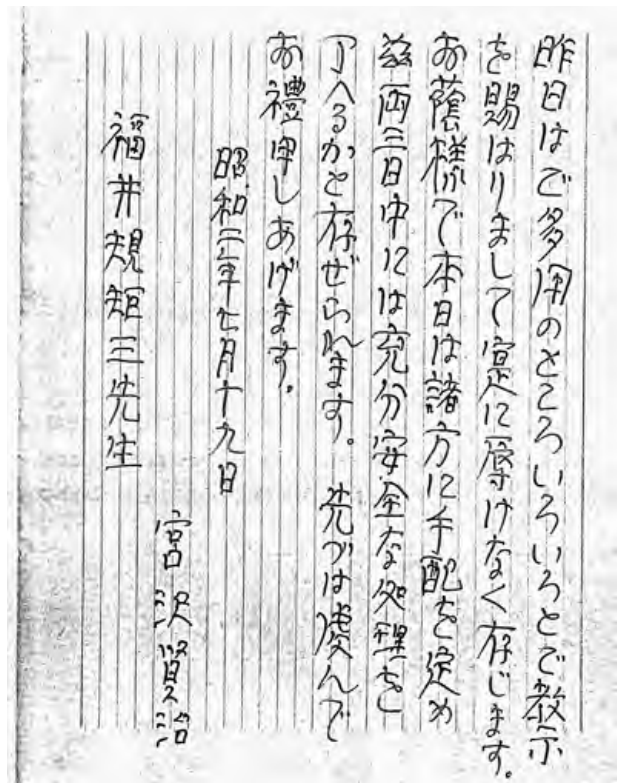 昨日はご多用のところいろいろとご教示
を賜はりまして寔に辱けなく存じます。
お蔭様で本日は諸方に手配を定め
茲両三日中には充分安全な処理を
了へるかと存ぜられます。先づは虔んで
お禮申しあげます。
昭和二年七月十九日
宮沢賢治
福井規矩三先生